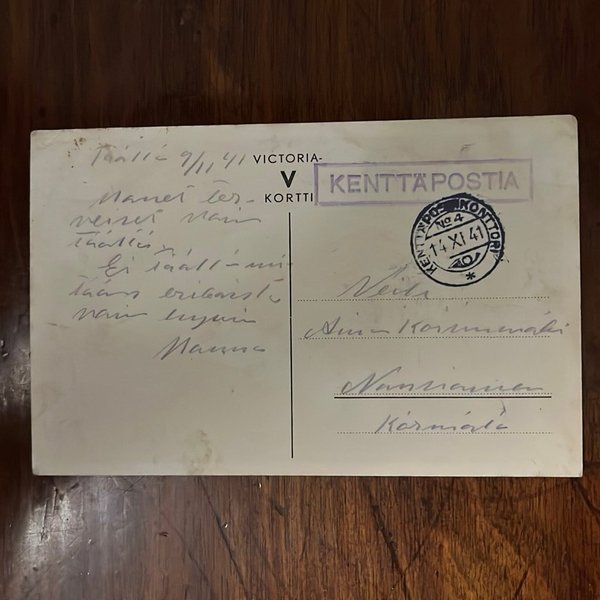 Täällä 9/11 41
Monet ter-
veiset vain
täältä
Ei täällä mi-
tään erikoista
vain hyvin
Hannu
VICTORIA-
V
KORTTI
KENTTÄPOSTIA
KENTTÄPOSTIKONTTORI
No 4
14.XI.41
Neiti
Aina